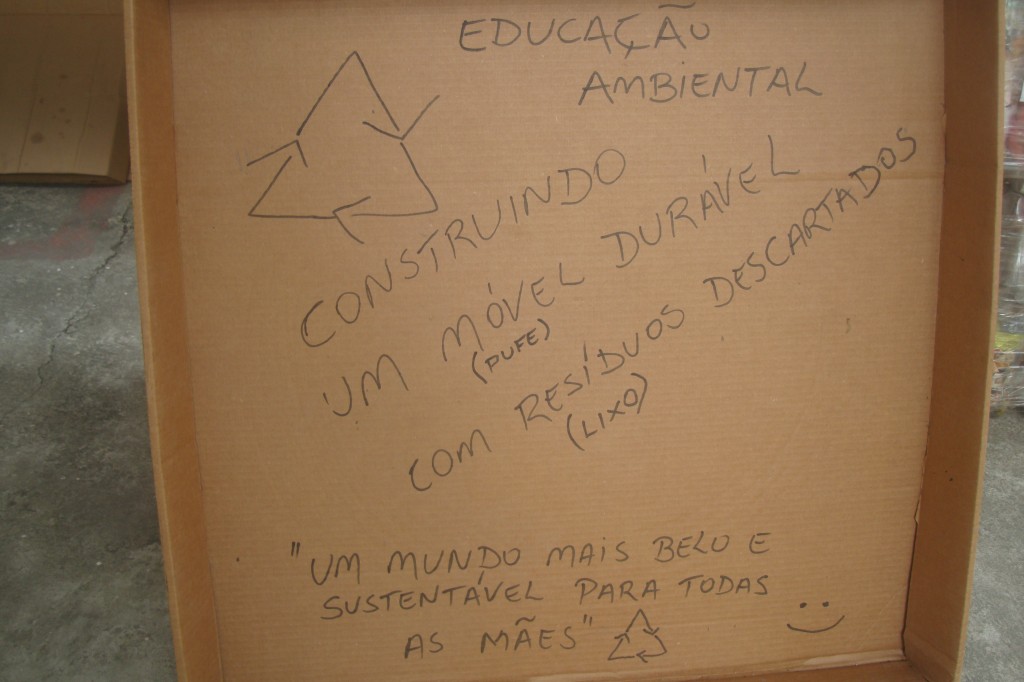 EDUCAÇÃO
AMBIENTAL
CONSTRUINDO
UM MÓVEL DURÁVEL
(PUFE)
COM RESÍDUOS DESCARTADOS
(LIXO)
"UM MUNDO MAIS BELO E
SUSTENTÁVEL PARA TODAS
AS MÃES"